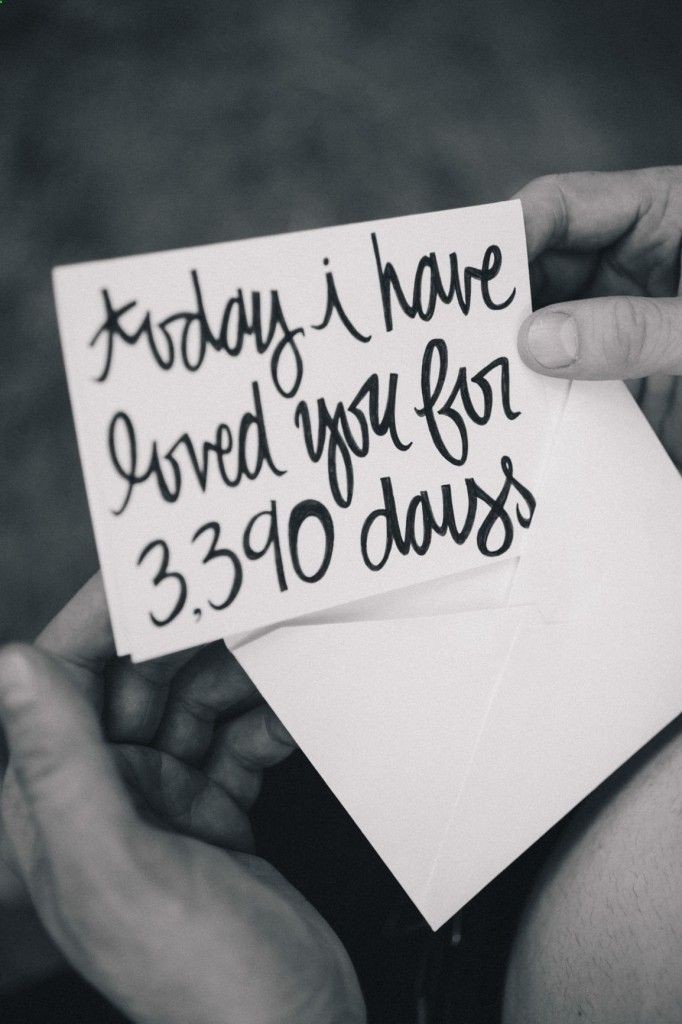 today i have
loved you for
3,390 days.